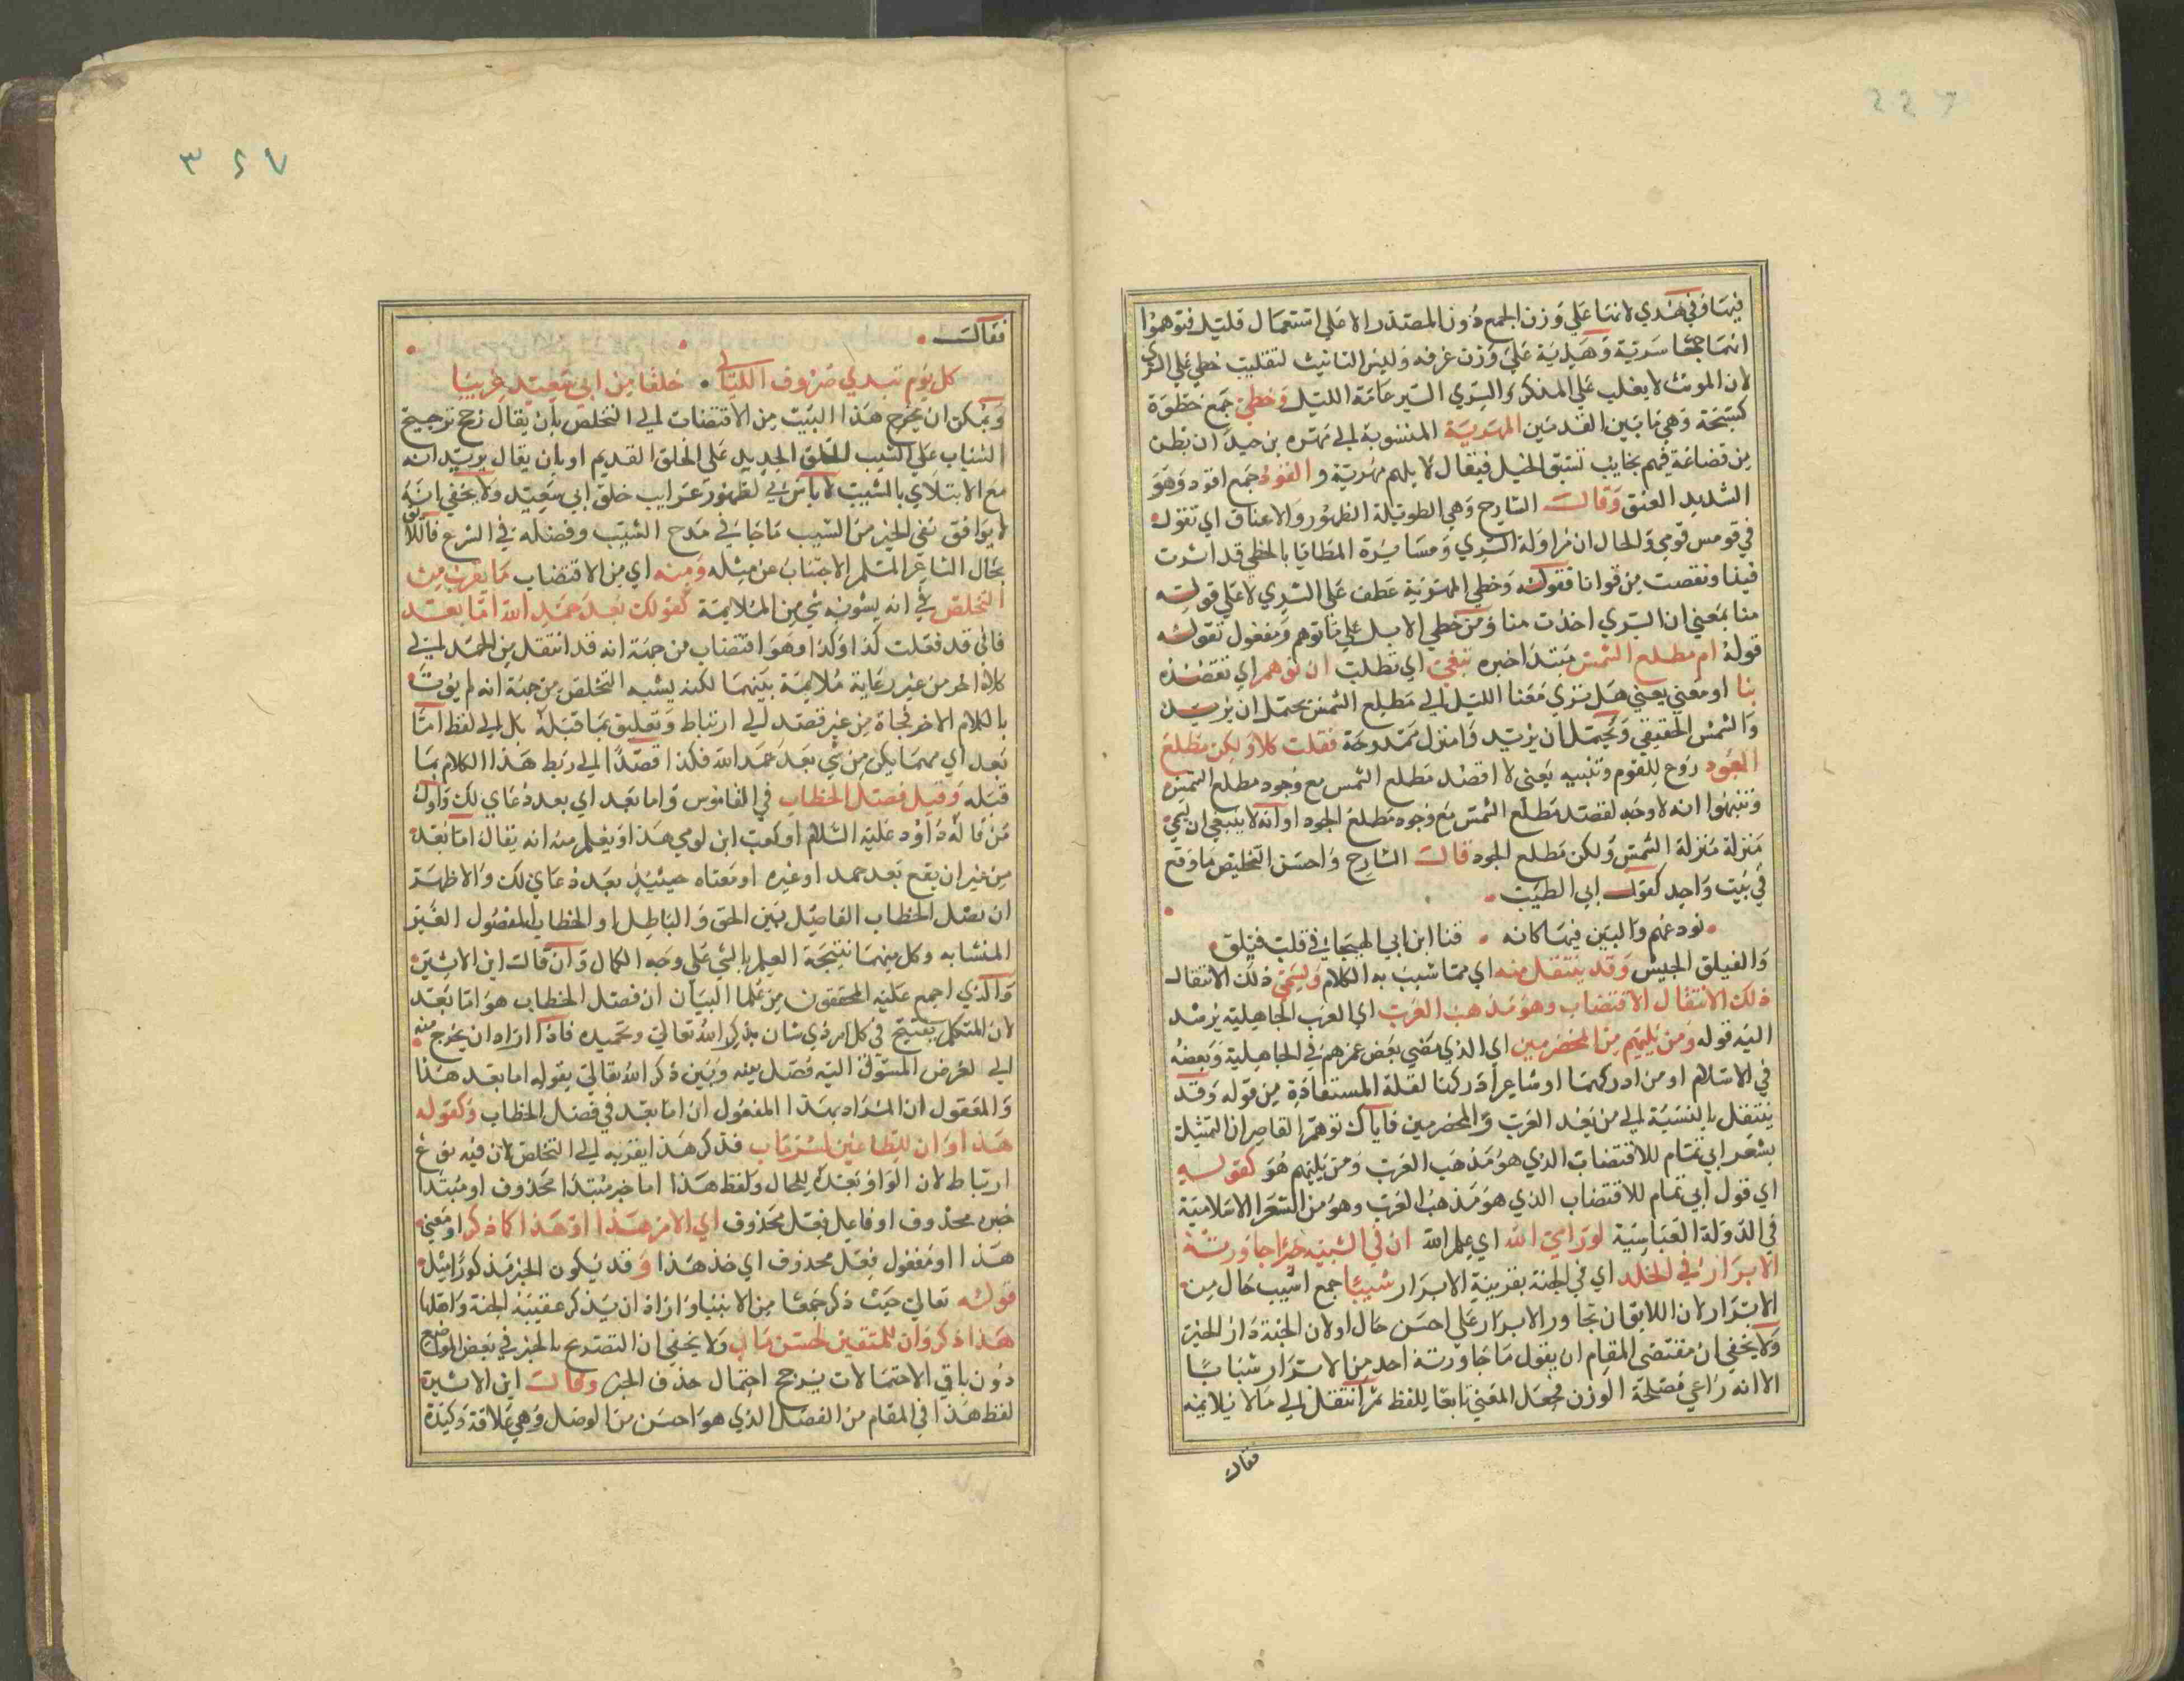 فيها وفي هدي لانها علي وزن الجمع دون المصدر الا علي استعمال قليل فتوهموا
انهما جمعا سرية وهدية علي وزن غرفه وليس التانيث لتغليب خطي علي السري
لان المونث لا يغلب علي المذكر والسري السير عامة الليل وخطي جمع خطوة
وهي ما بين القدمين المهرية المنسوبة الي مهره بن حيدان بطن
من قضاعة فيهم نجايب تسبق الخيل فيقال لابلهم مهرية والقود جمع اقود وهو
الشديد العنق وقالت الشارح وهي الطويلة الظهور والاعناق اي تقول
في قومس قومي والحال ان مزاولة السري ومسايرة المطايا بالخطي قد اثرت
فينا ونقصت من قوانا فقوله وخطي المهرية عطف علي السري لا علي قوله
منا بمعني ان السري اخذت منا ومن خطي الابل علي ما توهم ومفعول تقول
قوله ام مطلع الشمس مبتدا خبره تبغي اي تطلب ان توهم اي تقصد
بنا او معني يعني هل نري معنا الليل الي مطلع الشمس يحتمل ان يريد
والشمس الحقيقي ويحتمل ان يريد وامنزل ممدوحة فقلت كلا ولكن مطلع
الجود ردع للقوم وتنبيه يعني لا اقصد مطلع الشمس مع وجود مطلع
وتنبهوا انه لا وجه لقصد مطلع الشمس مع وجود مطلع الجود او انه لا ينبغي ان
منزلة منزلة الشمس ولكن مطلع الجود قالت الشارح واحسن التخليص ما وقع
في بيت واحد كقول ابي الطيب
نودعهم والبين فينا كانه قنا ابن ابي الهيجا في قلب فيلق
والفيلق الجيش وقد ينتقل منه اي مما شبب به الكلام ويسمي ذلك الانتقال
ذلك الانتقال الاقتضاب وهو مذهب العرب اي العرب الجاهلية يرشد
اليه قوله ومن يليهم من المخضرمين اي الذي مضي بعض عمرهم في الجاهلية وبعضه
في الاسلام او من ادركهما او شاعرا ادركنا لقلة المستفادة من قوله وقد
ينتقل بالنسبة الي من بعد العرب والمخضرمين فاياك توهم القاصر ان التمثيل
بشعر ابي تمام للاقتضاب الذي هو مذهب العرب ومن يليهم هو كقوله
اي قول ابي تمام للاقتضاب الذي هو مذهب العرب وهو من الشعرا الاسلامية
في الدولة العباسية لو راي الله اي علم الله ان في الشيب خيرا جاورته
الابرار في الخلد اي في الجنة بقرينة الابرار شيبا جمع اشيب حال من
الابرار لان اللايق ان تجاور الابرار علي احسن حال اولان الجنة دار الخير
ولا يخفي ان مقتضي المقام ان يقول ما جاورته احد من الابرار شبابا
الا انه راعي مصلحة الوزن فجعل المعني تابعا للفظ ثم انتقل الي ما لا يلايمه
فقال
٣٤٧
فقالت
كل يوم تبدي صروف الليالي خلقا من ابي سعيد غريبا
ويمكن ان يخرج هذا البيت من الاقتضاب الي التخلص بان يقال رجح ترجيح
الشباب علي الشيب الخلق الجديد علي الخلق القديم او بان يقال يريد انه
مع الابتلاي بالشيب لا باس لي لظهور غرايب خلق ابي سعيد ولا يخفي انه
لا يوافق نفي الخير من الشيب ما جا في مدح الشيب وفضله في الشرع فاللايق
بحال الشاعر المسلم الاجتناب عن مثله ومنه اي من الاقتضاب ما يقرب من
التخلص في انه يشوبه شي من الملايمة كقولك بعد حمد الله اما بعد
فاني قد فعلت كذا وكذا وهو اقتضاب من جهة انه قد انتقل من الحمد الي
كلام اخر من غير رعاية ملايمة بينهما لكنه يشبه التخلص من جهة انه لم يوت
بالكلام الاخر فجاة من غير قصد الي ارتباط وتعليق بما قبله بل الي لفظ اما
بعد اي مهما يكن من شي بعد حمد الله فكذا قصدا الي ربط هذا الكلام بما
قبله وقيل فصل الخطاب في القاموس واما بعد اي بعد دعاي لك واول
من قاله داود عليه السلام او كعب ابن لوي هذا ويعلم منه انه يقال اما بعد
من غير ان يقع بعد حمد او غيره او معناه حينيذ بعد دعاي لك والاظهر
ان فصل الخطاب الفاصل بين الحق والباطل او الخطاب المفصول الغير
المتشابه وكل منهما نتيجة العلم بالشي علي وجه الكمال وان قالت ابن الاثير
والذي اجمع عليه المحققون من علما البيان ان فصل الخطاب هو اما بعد
لان المتكلم يفتتح في كل امر ذي شان بذكر الله تعالي وتحميده فاذا اراد ان يخرج منه
الي الغرض المسوق اليه فصل بينه وبين ذكر الله تعالي بقوله اما بعد هذا
والمعقول ان المراد بهذا المفعول ان اما بعد في فصل الخطاب وكقوله
هذا وان للطاغين لشر ماب فذكر هذا يقربه الي التخلص لان فيه نوع
ارتباط لان الواو بعده للحال ولفظ هذا اما خبر مبتدا محذوف او مبتدا
خبره محذوف او فاعل فعل محذوف اي الامر هذا او هذا كما ذكر او معني
هذا او مفعول فعل محذوف اي خذ هذا وقد يكون الخبر مذكورا مثل
قوله تعالي حيث ذكر جمعا من الانبيا واراد ان يذكر عقيبه الجنة واهلها
هذا ذكر وان للمتقين لحسن ماب ولا يخفي ان التصريح بالخبر في بعض المواضع
دون باقي الاحتمالات يرجح احتمال حذف الخبر وقالت ابن الاثير
لفظ هذا في المقام من الفصل الذي هو احسن من الوصل وهي علاقة وكيدة